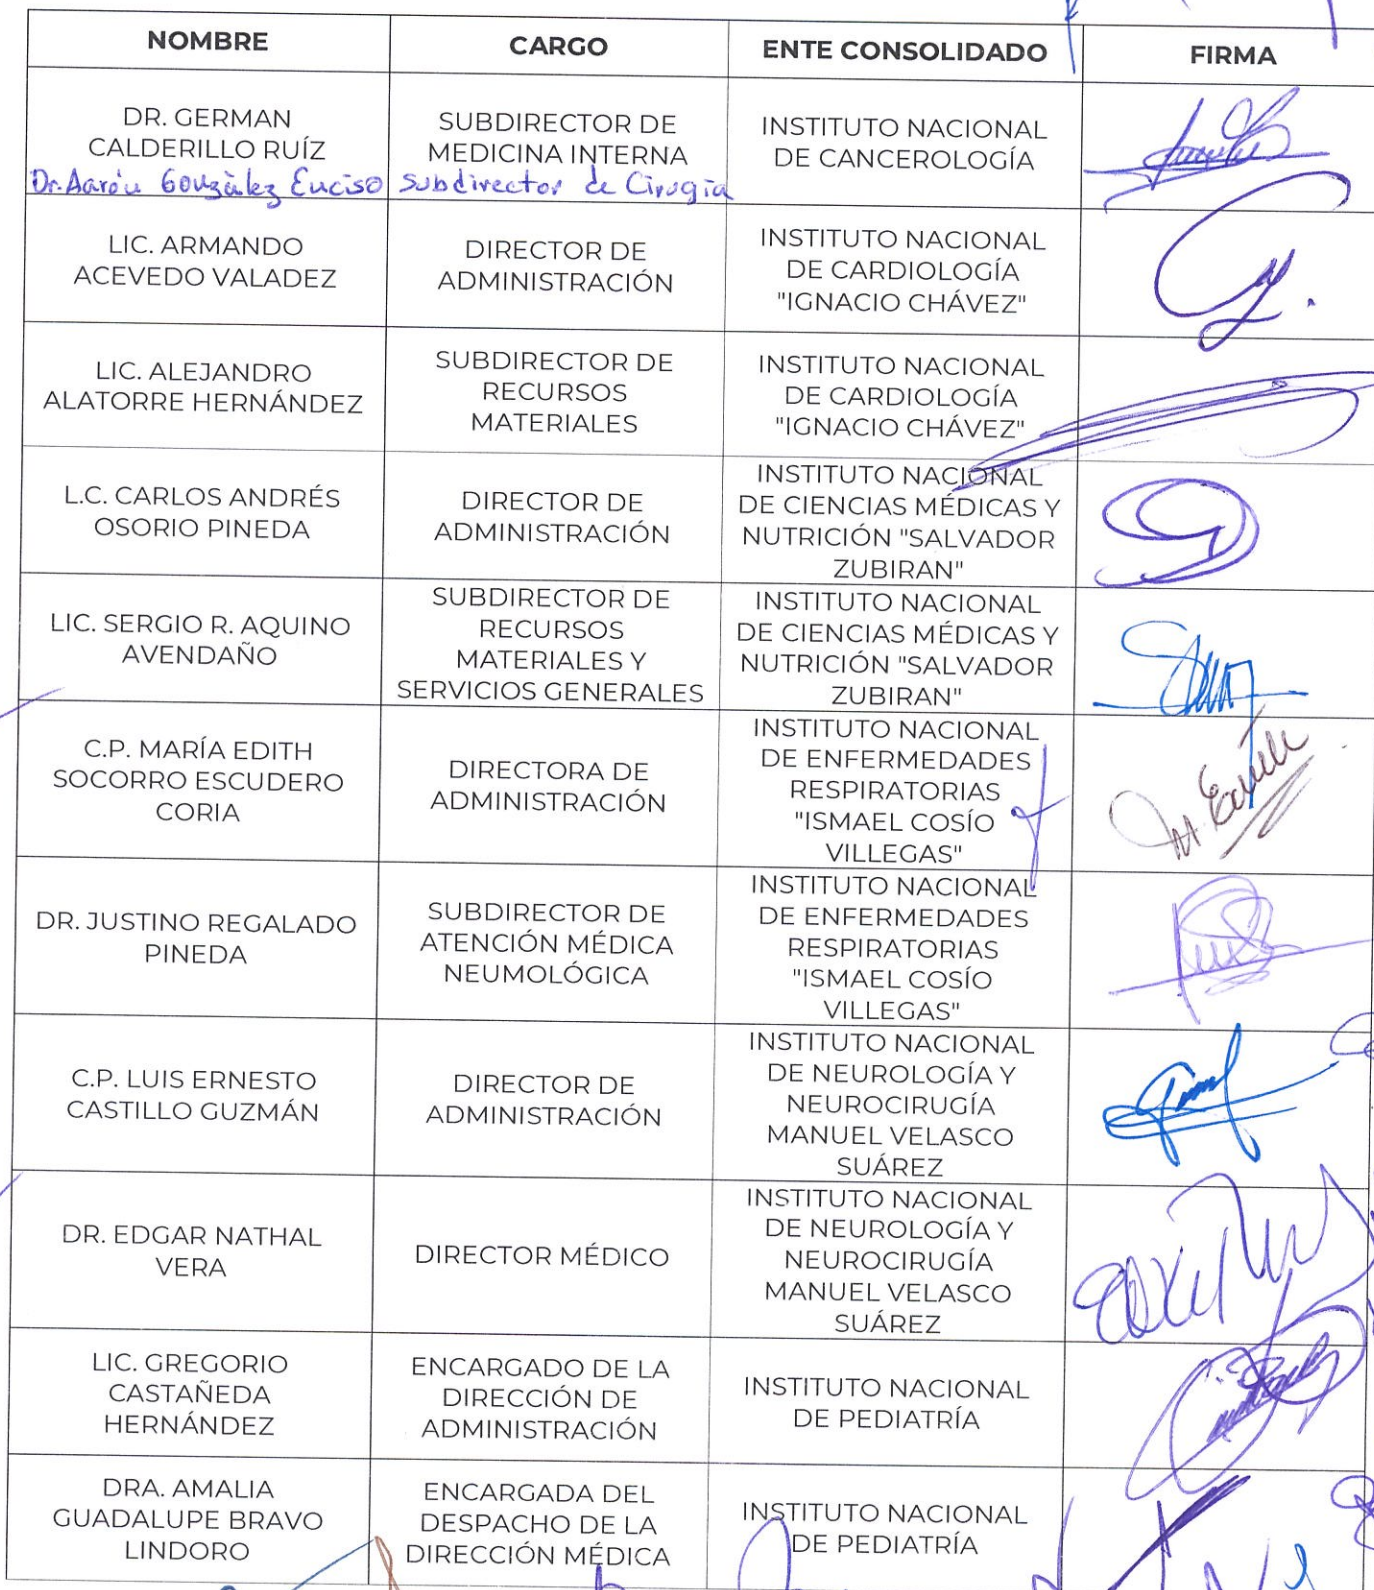 NOMBRE
CARGO
ENTE CONSOLIDADO
FIRMA
DR. GERMAN
CALDERILLO RUÍZ
Dr. Aarón González Enciso
SUBDIRECTOR DE
MEDICINA INTERNA
Subdirector de Cirugía
INSTITUTO NACIONAL
DE CANCEROLOGÍA
LIC. ARMANDO
ACEVEDO VALADEZ
DIRECTOR DE
ADMINISTRACIÓN
INSTITUTO NACIONAL
DE CARDIOLOGÍA
"IGNACIO CHÁVEZ"
LIC. ALEJANDRO
ALATORRE HERNÁNDEZ
SUBDIRECTOR DE
RECURSOS
MATERIALES
INSTITUTO NACIONAL
DE CARDIOLOGÍA
"IGNACIO CHÁVEZ"
L.C. CARLOS ANDRÉS
OSORIO PINEDA
DIRECTOR DE
ADMINISTRACIÓN
INSTITUTO NACIONAL
DE CIENCIAS MÉDICAS Y
NUTRICIÓN "SALVADOR
ZUBIRAN"
LIC. SERGIO R. AQUINO
AVENDAÑO
SUBDIRECTOR DE
RECURSOS
MATERIALES Y
SERVICIOS GENERALES
INSTITUTO NACIONAL
DE CIENCIAS MÉDICAS Y
NUTRICIÓN "SALVADOR
ZUBIRAN"
C.P. MARÍA EDITH
SOCORRO ESCUDERO
CORIA
DIRECTORA DE
ADMINISTRACIÓN
INSTITUTO NACIONAL
DE ENFERMEDADES
RESPIRATORIAS
"ISMAEL COSÍO
VILLEGAS"
DR. JUSTINO REGALADO
PINEDA
SUBDIRECTOR DE
ATENCIÓN MÉDICA
NEUMOLÓGICA
INSTITUTO NACIONAL
DE ENFERMEDADES
RESPIRATORIAS
"ISMAEL COSÍO
VILLEGAS"
C.P. LUIS ERNESTO
CASTILLO GUZMÁN
DIRECTOR DE
ADMINISTRACIÓN
INSTITUTO NACIONAL
DE NEUROLOGÍA Y
NEUROCIRUGÍA
MANUEL VELASCO
SUÁREZ
DR. EDGAR NATHAL
VERA
DIRECTOR MÉDICO
INSTITUTO NACIONAL
DE NEUROLOGÍA Y
NEUROCIRUGÍA
MANUEL VELASCO
SUÁREZ
LIC. GREGORIO
CASTAÑEDA
HERNÁNDEZ
ENCARGADO DE LA
DIRECCIÓN DE
ADMINISTRACIÓN
INSTITUTO NACIONAL
DE PEDIATRÍA
DRA. AMALIA
GUADALUPE BRAVO
LINDORO
ENCARGADA DEL
DESPACHO DE LA
DIRECCIÓN MÉDICA
INSTITUTO NACIONAL
DE PEDIATRÍA